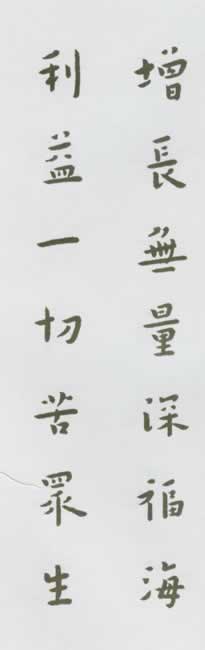 增長無量深福海
利益一切苦眾生